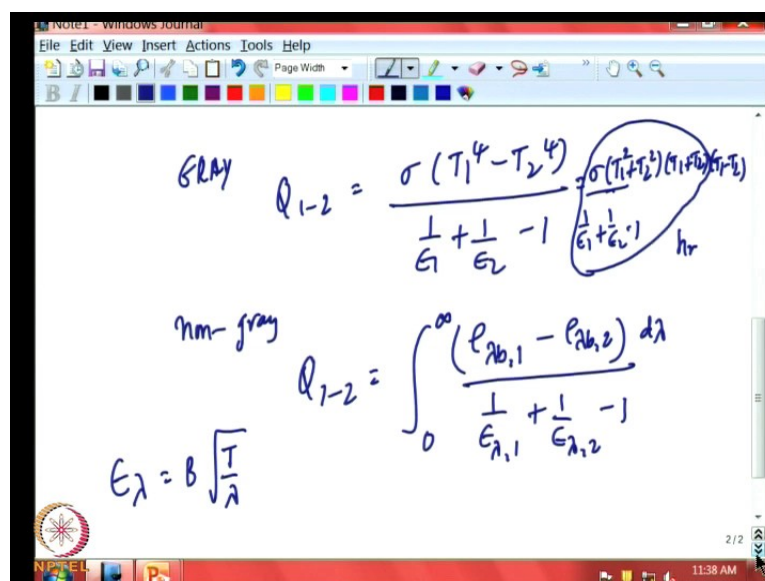 Note1 - Windows Journal
File Edit View Insert Actions Tools Help
Page Width
B I
GRAY Q₁₋₂ = σ(T₁⁴ − T₂⁴) / (1/ϵ₁ + 1/ϵ₂ − 1) = σ(T₁²+T₂²)(T₁+T₂)(T₁−T₂) / (1/ϵ₁ + 1/ϵ₂ − 1) hr
non-gray Q₁₋₂ = ∫₀^∞ (e_λb,1 − e_λb,2) dλ / (1/ϵ_λ,1 + 1/ϵ_λ,2 − 1)
ϵ_λ = B √(T/λ)
2/2
NPTEL
11:38 AM